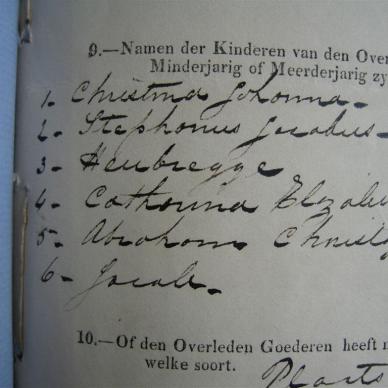 9.—Namen der Kinderen van den Over
Minderjarig of Meerderjarig zy
1- Christina Johanna-
2- Stephanus Jacobus-
3-
4- Catharina Elzabe
5- Abraham Christ
6- Jacob-
10.—Of den Overleden Goederen heeft n
welke soort.
Plaats